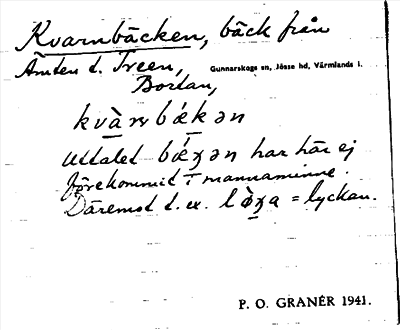 Kvarnbäcken, bäck från
Ämten t. Treen,
Gunnarskogs sn, Jösse hd, Värmlands l.
Bortan,
kvàrn bǽkən
Uttalet bǽχən har här ej
förekommit i mannaminne.
Däremot t. ex. lòχa = lyckan.
P. O. GRANÉR 1941.